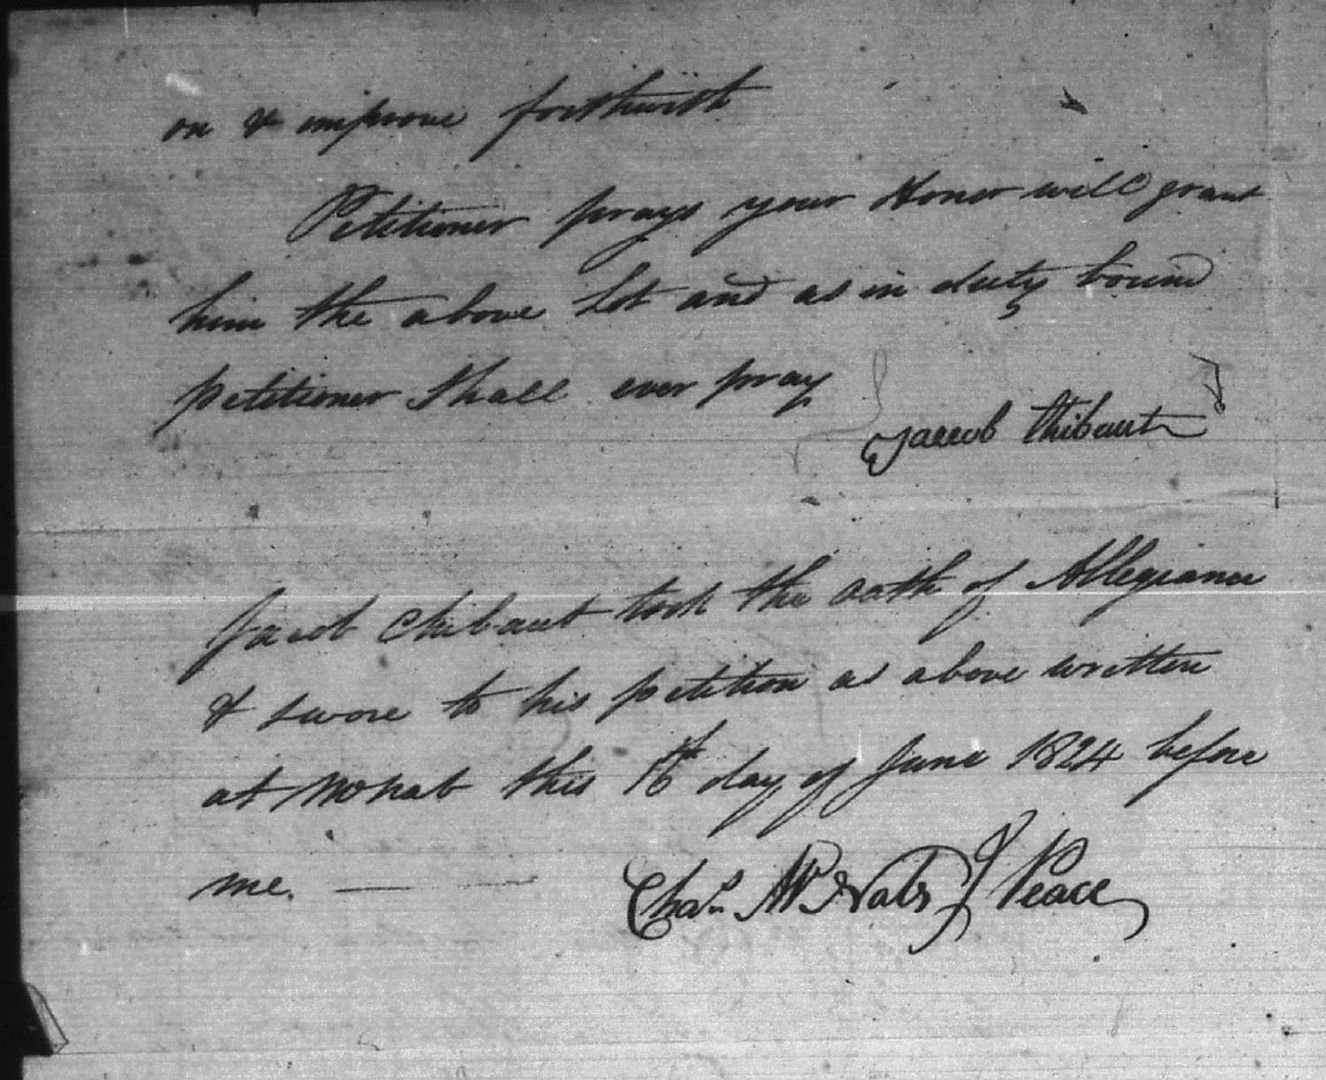 on & improve forthwith
Petitioner prays your Honor will grant
him the above Lot and as in duty bound
petitioner shall ever pray
Jacob thibaut
Jacob Thibaut took the oath of Allegiance
& swore to his petition as above written
at this day of June 1824 before
me.
Chas. McNabb J Peace